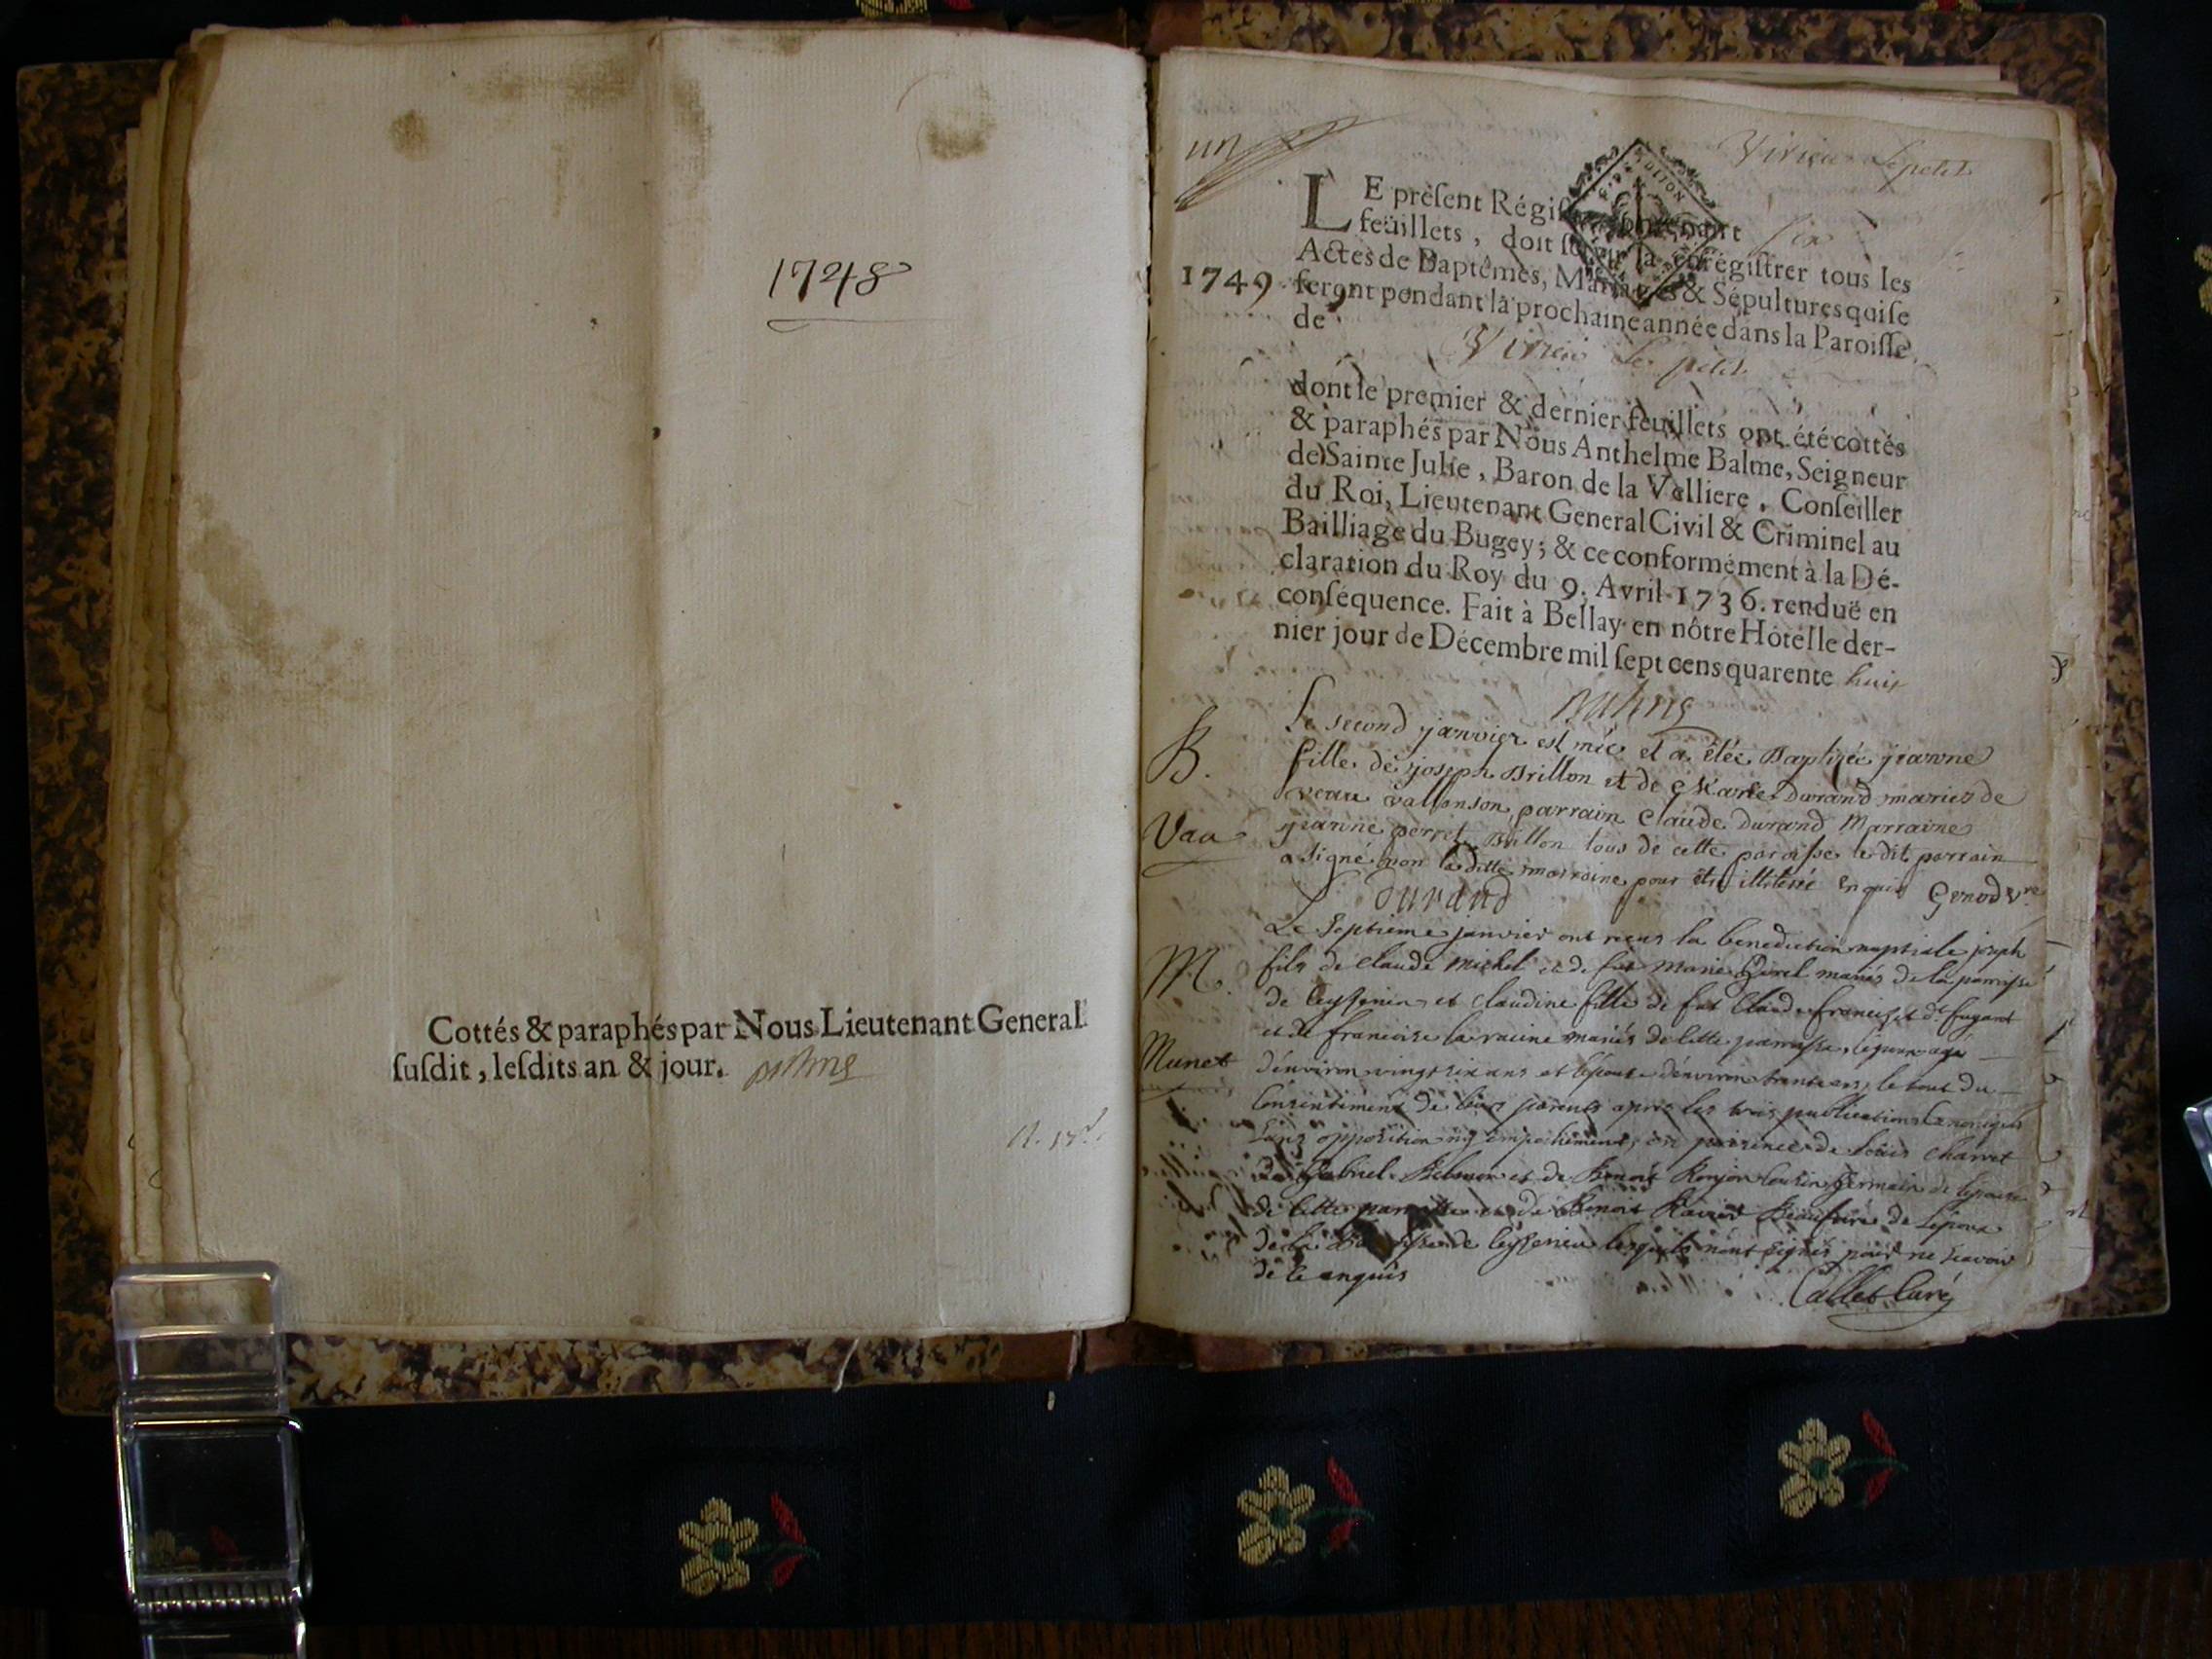 1748
Cottés & paraphés par Nous Lieutenant General
ſuſdit, leſdits an & jour.
un
Virieu Le petit
LE préſent Régiſtre contenant ſix
feüillets, doit ſervir à enrégiſtrer tous les
Actes de Baptêmes, Mariages & Sépultures qui ſe
1749. feront pendant la prochaine année dans la Paroiſſe
de Virieu Le petit
dont le premier & dernier feuillets ont été cottés
& paraphés par Nous Anthelme Balme, Seigneur
de Sainte Julie, Baron de la Velliere, Conſeiller
du Roi, Lieutenant General Civil & Criminel au
Bailliage du Bugey; & ce conformément à la Dé-
claration du Roy du 9. Avril 1736. renduë en
conſéquence. Fait à Bellay en nôtre Hôtel le der-
nier jour de Décembre mil ſept cens quarente huit
Le second janvier est née et a étée Baptizée jeanne
B. fille de joseph Brillon et de Marie Durand mariez de
parrain Claude Durand Marraine
Vaa
jeanne perret Brillon tous de cette paroisse le dit parrain
a signé non la ditte marraine pour être illiteré enquis
Durand
Le Septieme janvier ont reçus la benediction nuptiale joseph
M. fils de Claude Michel et de fut Marie mariés de la parroisse
de Ceyzerieu et Claudine fille de fut Claude
et de francoise la racine mariés de cette parroisse, lépoux agé
Munet d'environ vingt six ans et lépouse d'environ trente ans, le tout du
Consentiment de leurs parents apres les trois publications Canoniques
Sans opposition ny empechement, en présence de Louis Charvet
de Gabriel et de Benoit Cousin germain de lépouse
de cette parroisse et de Benoit Beaufrere de Lépoux
de la de Ceyzerieu lesquels n'ont signés pour ne scavoir
de ce enquis
Callet Curé